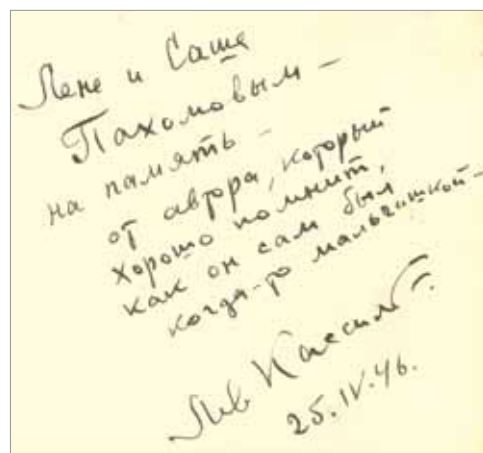 Лене и Саше
Пахомовым —
на память —
от автора, который
хорошо помнит,
как он сам был
когда-то мальчишкой —
Лев Кассиль.
25.IV.46.